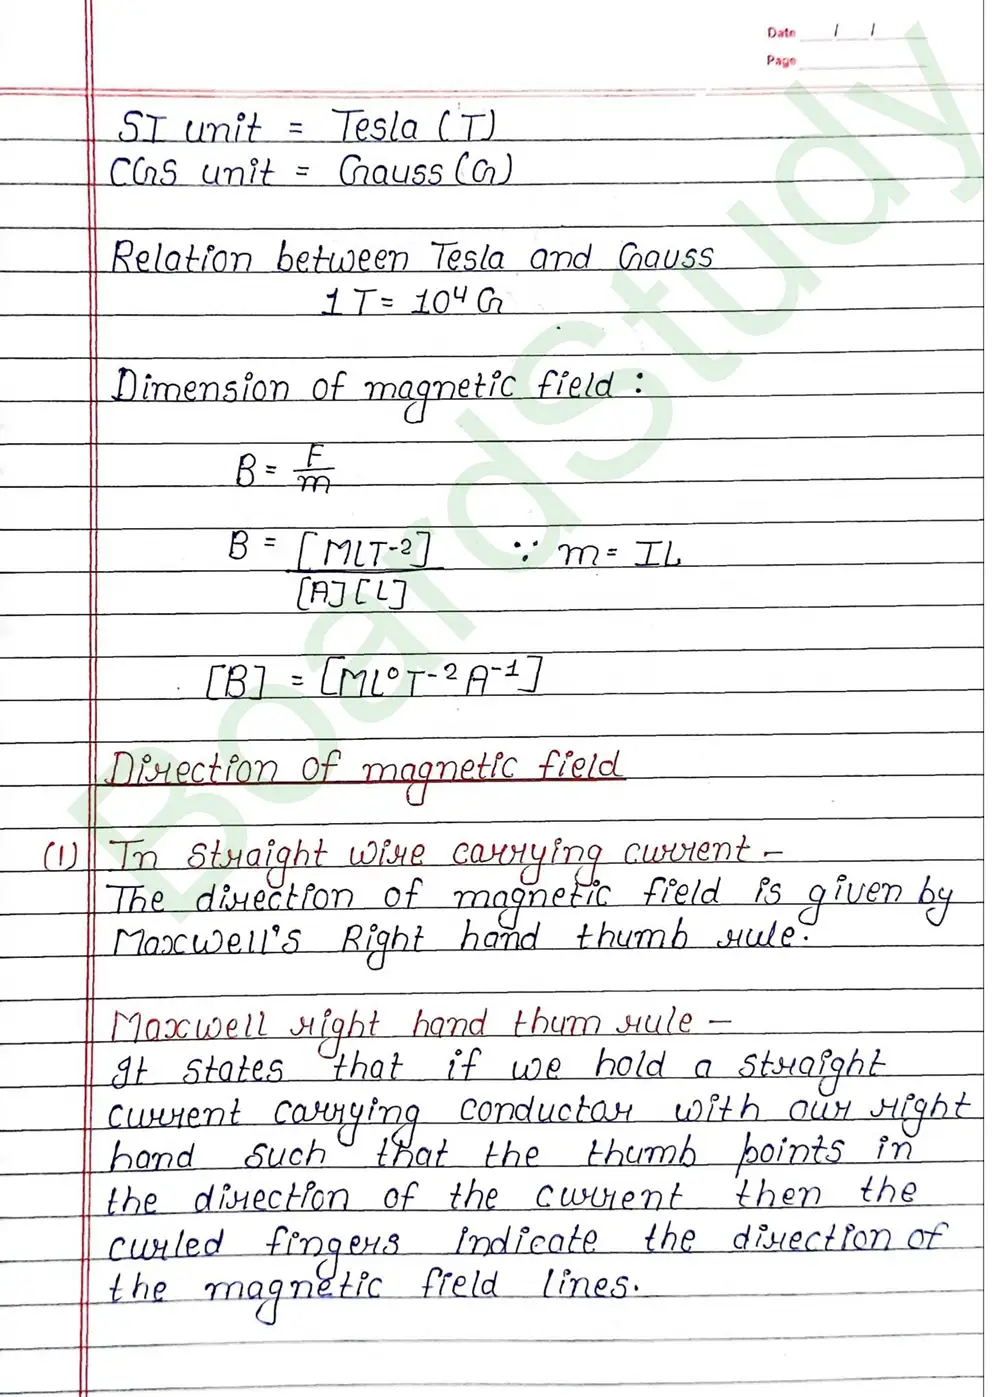 Date / /
Page
SI unit = Tesla (T)
CGS unit = Gauss (G)
Relation between Tesla and Gauss
1 T = 10⁴ G
Dimension of magnetic field :
B = F/m
B = [MLT⁻²]/[A][L] ∵ m = IL
[B] = [ML⁰T⁻²A⁻¹]
Direction of magnetic field
(1) In straight wire carrying current –
The direction of magnetic field is given by
Maxwell's Right hand thumb rule.
Maxwell right hand thum rule –
It states that if we hold a straight
current carrying conductor with our right
hand such that the thumb points in
the direction of the current then the
curled fingers indicate the direction of
the magnetic field lines.
BoardStudy